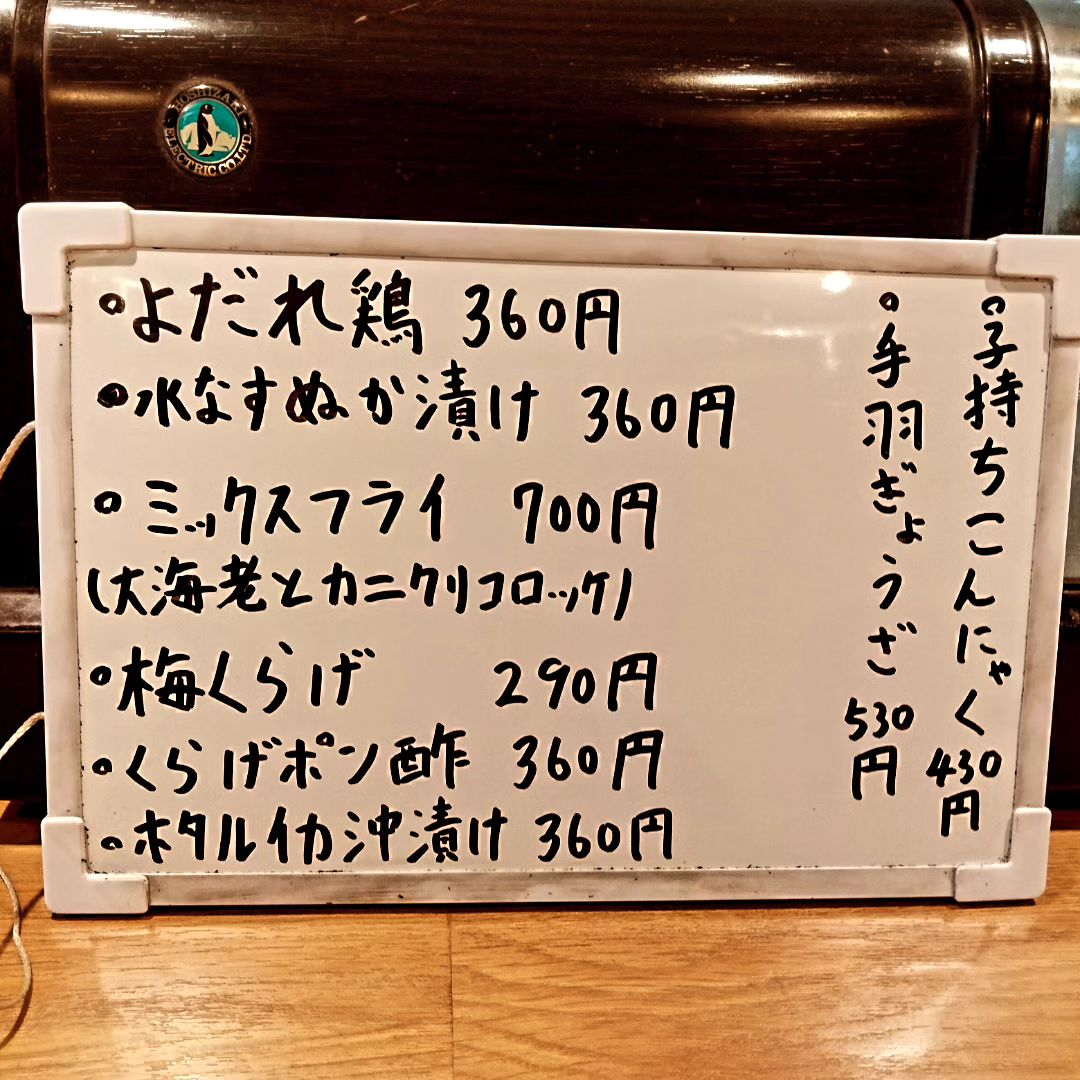 HOSHIZAKI ELECTRIC CO.LTD
よだれ鶏 360円
水なすぬか漬け 360円
ミックスフライ 700円
(大海老とカニクリコロッケ)
梅くらげ 290円
くらげポン酢 360円
ホタルイカ沖漬け 360円
子持ちこんにゃく 430円
手羽ぎょうざ 530円